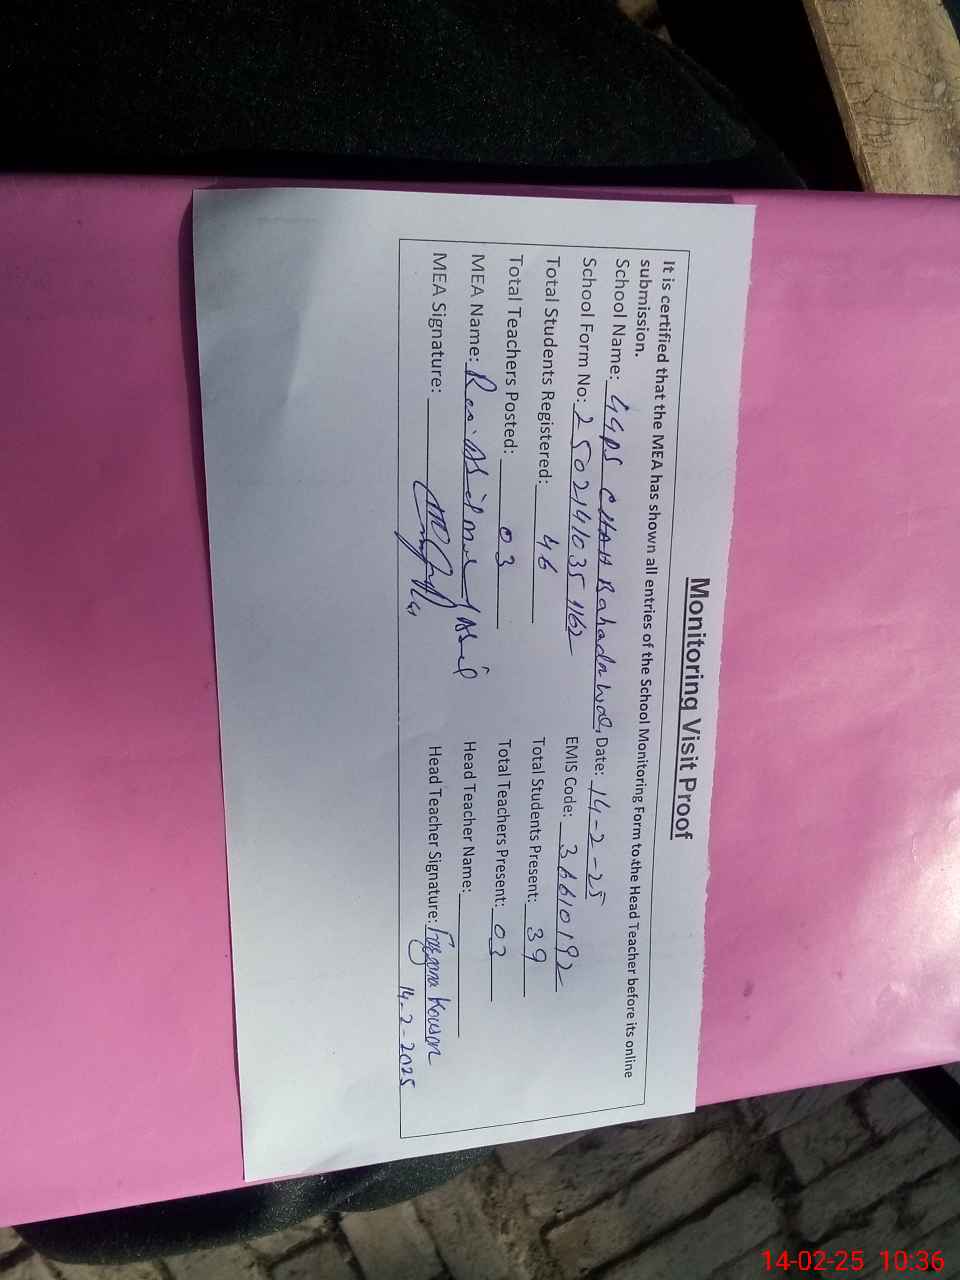 Monitoring Visit Proof
It is certified that the MEA has shown all entries of the School Monitoring Form to the Head Teacher before its online
submission.
School Name: GGPS CHAH Bahadr Date: 14-2-25
School Form No: 25021410351162 EMIS Code: 36610192
Total Students Registered: 46 Total Students Present: 39
Total Teachers Posted: 03 Total Teachers Present: 03
MEA Name: Head Teacher Name:
MEA Signature: Head Teacher Signature: Kousar
14-2-2025
14-02-25 10:36